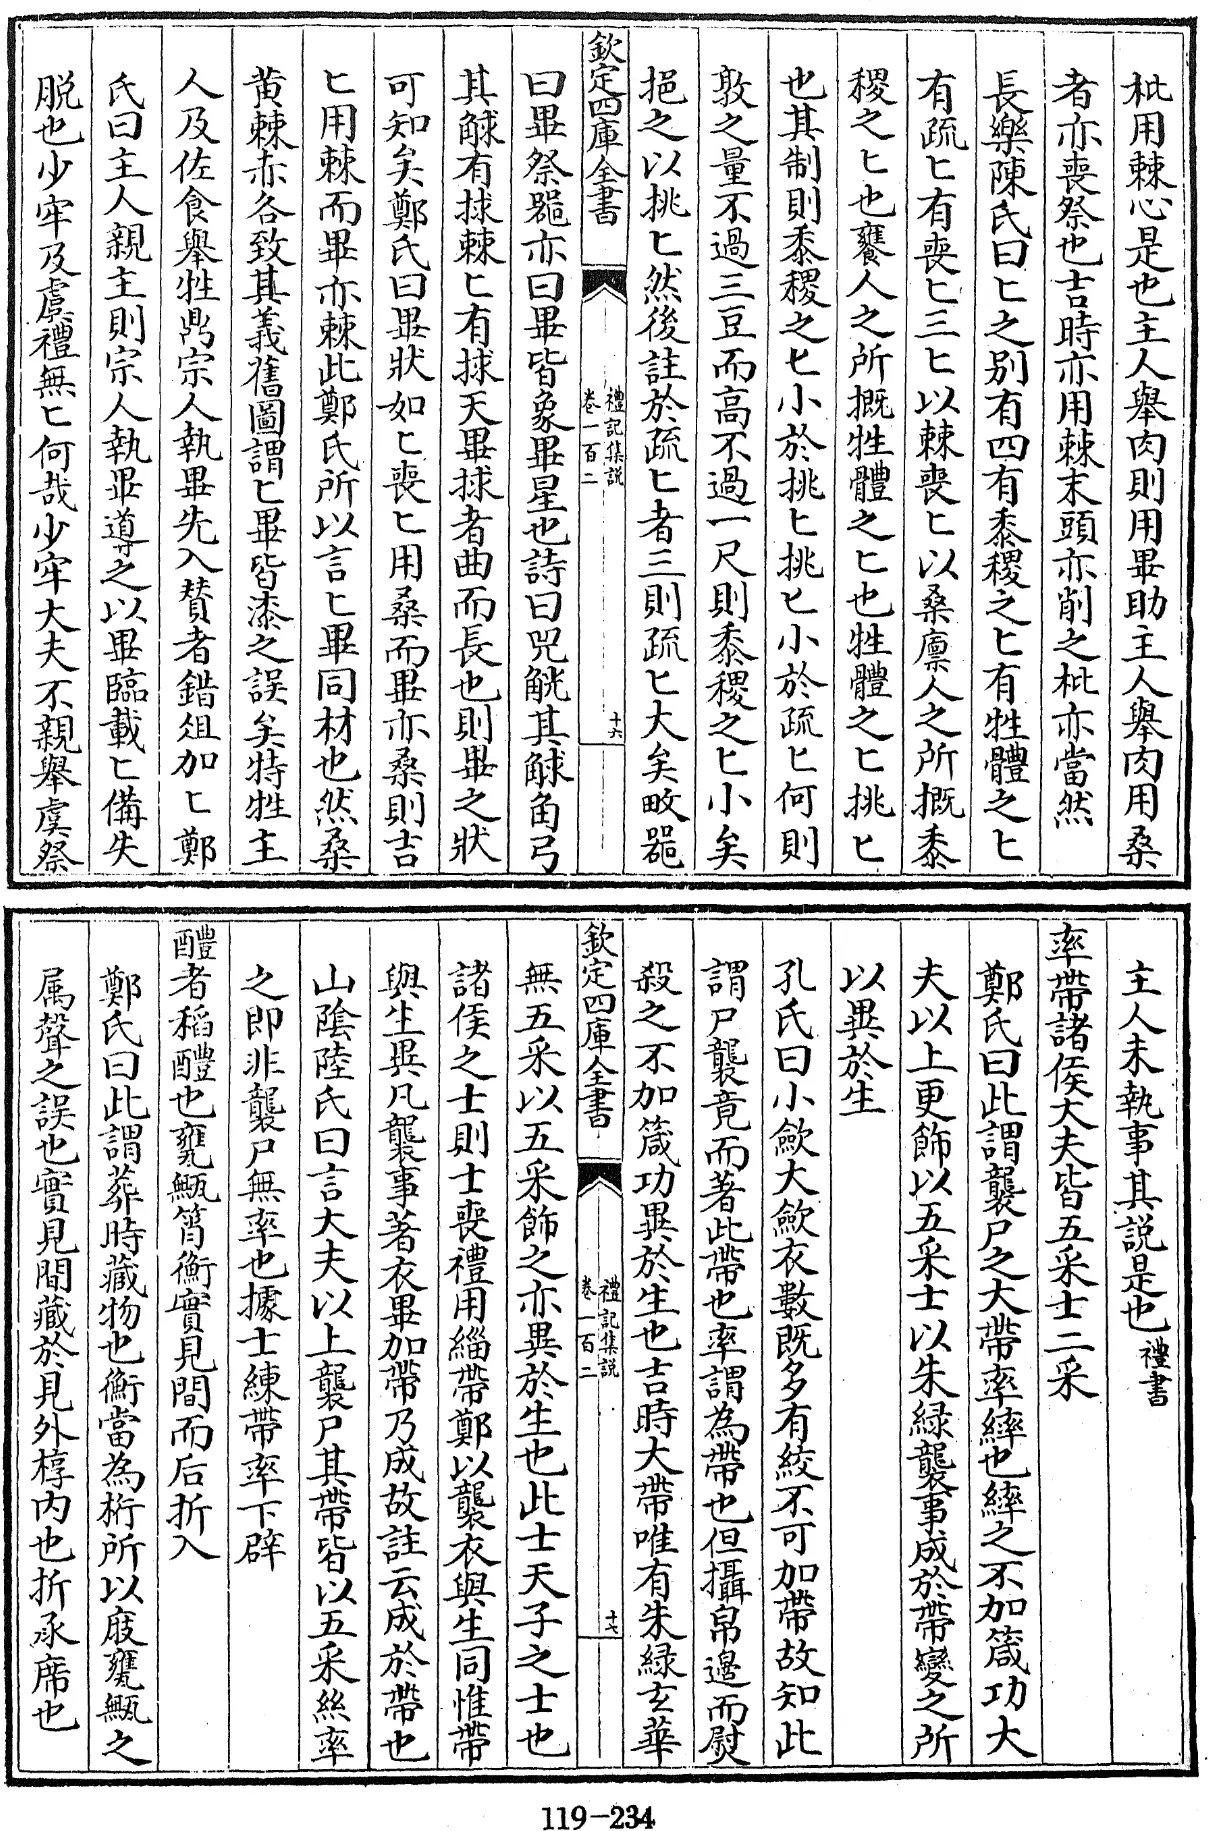 枇用棘心是也主人舉肉則用畢助主人舉肉用桑
者亦喪祭也吉時亦用棘末頭亦削之枇亦當然
長樂陳氏曰匕之别有四有黍稷之匕有牲體之匕
有疏匕有喪匕三匕以棘喪匕以桑廩人之所摡黍
稷之匕也饔人之所摡牲體之匕也牲體之匕挑匕
也其制則黍稷之匕小於挑匕挑匕小於疏匕何則
敦之量不過三豆而高不過一尺則黍稷之匕小矣
挹之以挑匕然後註於疏匕者三則疏匕大矣畋器
欽定四庫全書
禮記集説
卷一百二
十六
曰畢祭器亦曰畢皆象畢星也詩曰兕觥其觩角弓
其觩有捄棘匕有捄天畢捄者曲而長也則畢之狀
可知矣鄭氏曰畢狀如匕喪匕用桑而畢亦桑則吉
匕用棘而畢亦棘此鄭氏所以言匕畢同材也然桑
黄棘赤各致其義舊圖謂匕畢皆漆之誤矣特牲主
人及佐食舉牲鼎宗人執畢先入贊者錯俎加匕鄭
氏曰主人親主則宗人執畢導之以畢臨載匕備失
脱也少牢及虞禮無匕何哉少牢大夫不親舉虞祭
主人未執事其説是也禮書
率帶諸侯大夫皆五采士二采
鄭氏曰此謂襲尸之大帶率繂也繂之不加箴功大
夫以上更飾以五采士以朱緑襲事成於帶變之所
以異於生
孔氏曰小歛大歛衣數既多有絞不可加帶故知此
謂尸襲竟而著此帶也率謂為帶也但攝帛邉而熨
殺之不加箴功異於生也吉時大帶唯有朱緑玄華
欽定四庫全書
禮記集説
卷一百二
十七
無五采以五采飾之亦異於生也此士天子之士也
諸侯之士則士喪禮用緇帶鄭以襲衣與生同惟帶
與生異凡襲事著衣畢加帶乃成故註云成於帶也
山隂陸氏曰言大夫以上襲尸其帶皆以五采絲率
之即非襲尸無率也據士練帶率下辟
醴者稻醴也甕甒筲衡實見間而后折入
鄭氏曰此謂葬時藏物也衡當為桁所以庪甕甒之
属聲之誤也實見間藏於見外椁内也折承席也
119-234